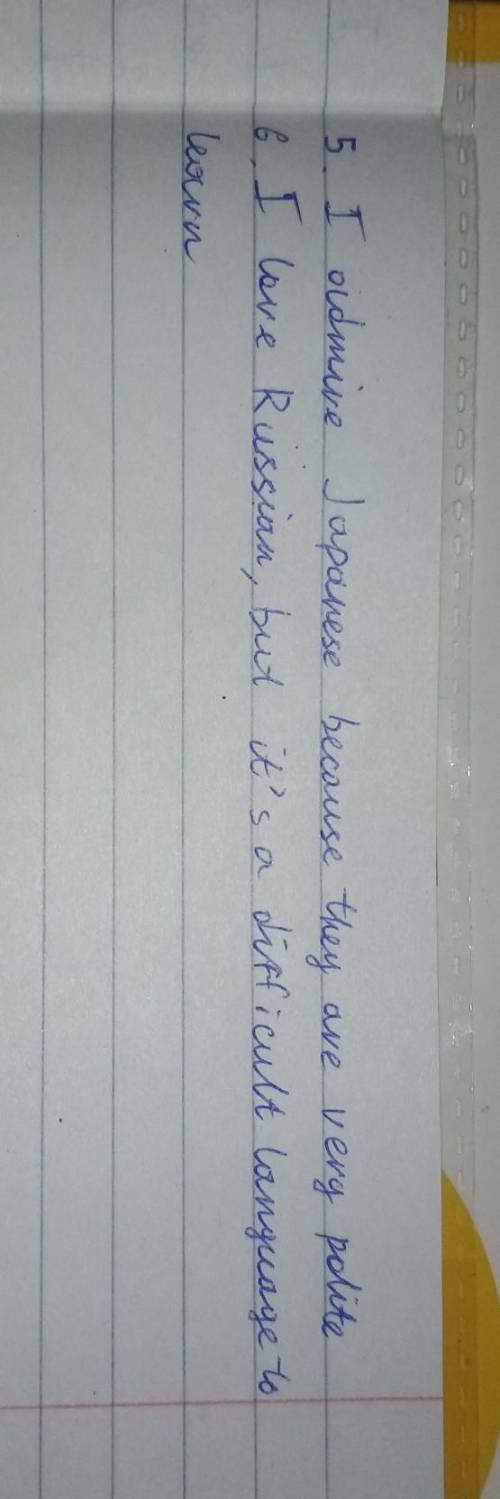 5. I admire Japanese because they are very polite
6. I love Russian, but it's a difficult language to
learn